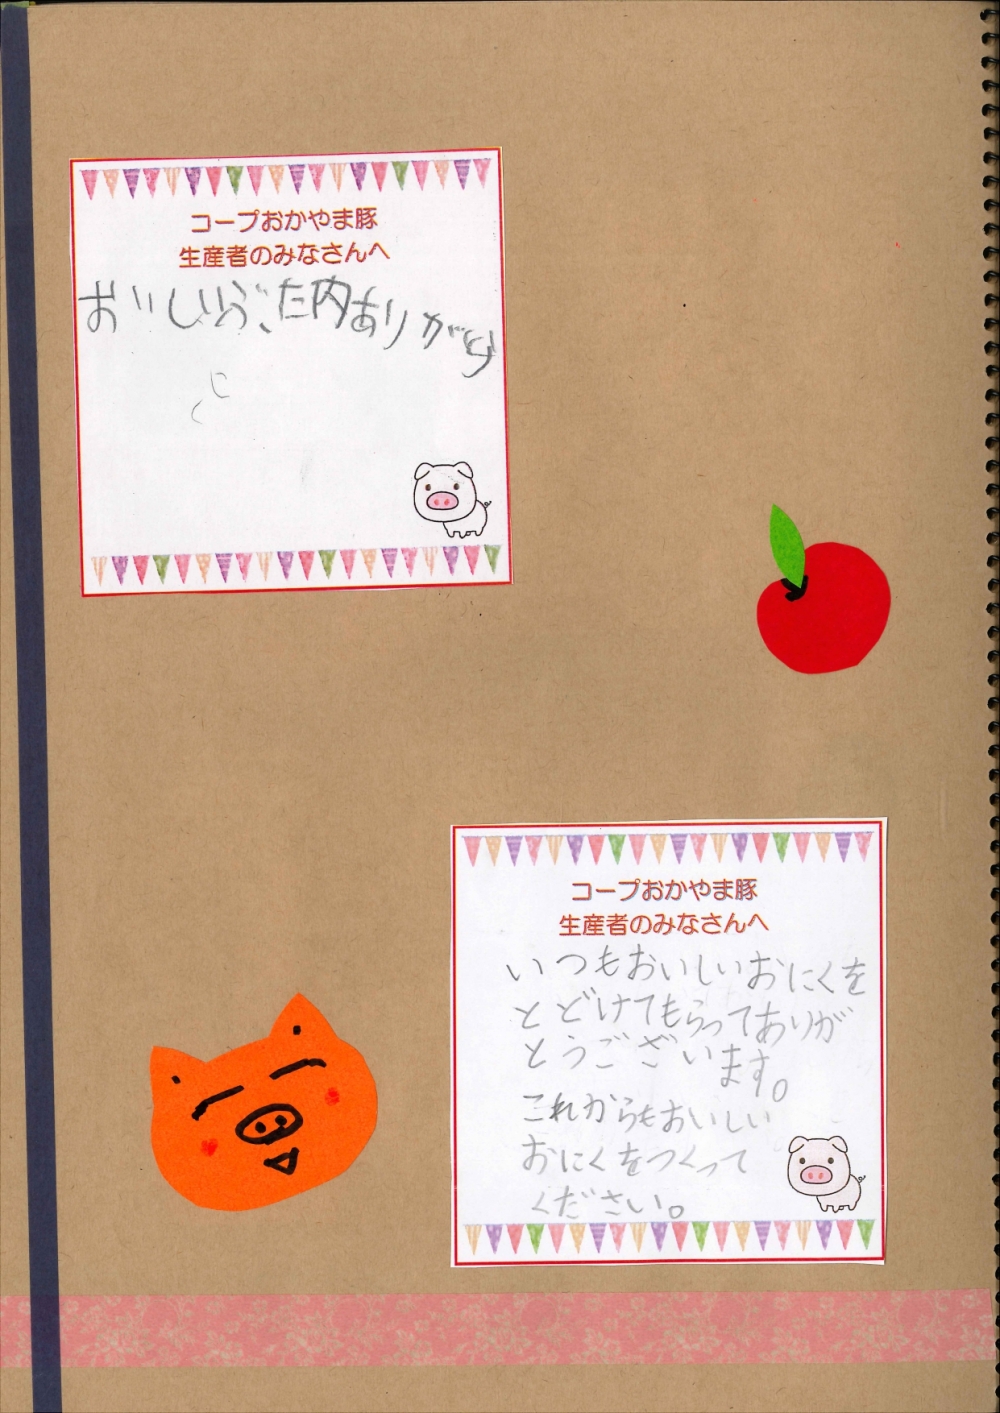 コープおかやま豚
生産者のみなさんへ
おいしいぶた肉ありがとう
コープおかやま豚
生産者のみなさんへ
いつもおいしいおにくを
とどけてもらってありが
とうございます。
これからもおいしい
おにくをつくって
ください。